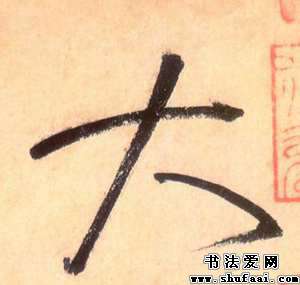 大
书法爱网
www.shufaai.com